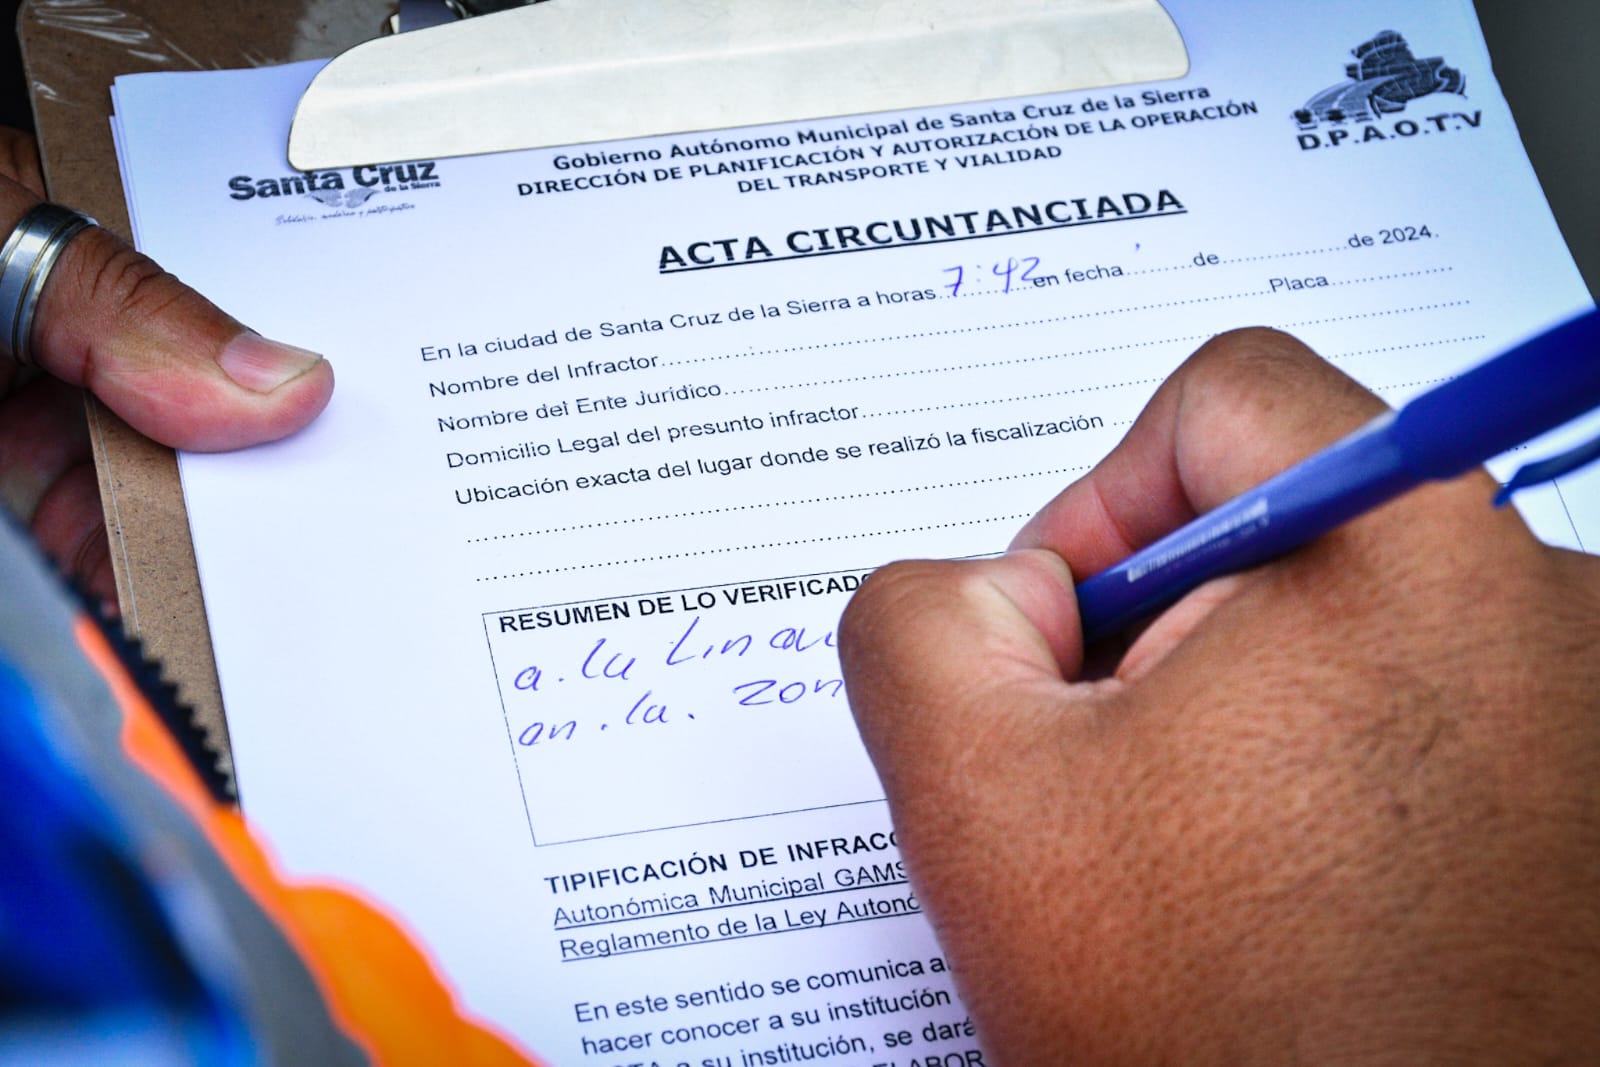 Santa Cruz
de la Sierra
Gobierno Autónomo Municipal de Santa Cruz de la Sierra
DIRECCIÓN DE PLANIFICACIÓN Y AUTORIZACIÓN DE LA OPERACIÓN
DEL TRANSPORTE Y VIALIDAD
D.P.A.O.T.V
ACTA CIRCUNTANCIADA
En la ciudad de Santa Cruz de la Sierra a horas 7:42 en fecha.........de................de 2024.
Nombre del Infractor..........................................................Placa................
Nombre del Ente Jurídico................................................................
Domicilio Legal del presunto infractor................................
Ubicación exacta del lugar donde se realizó la fiscalización ...
RESUMEN DE LO VERIFICADO
a. la
en. la.
TIPIFICACIÓN DE INFRACC
Autonómica Municipal GAMS
Reglamento de la Ley Autonó
En este sentido se comunica a
hacer conocer a su institución
a su institución, se dará
ELABOR